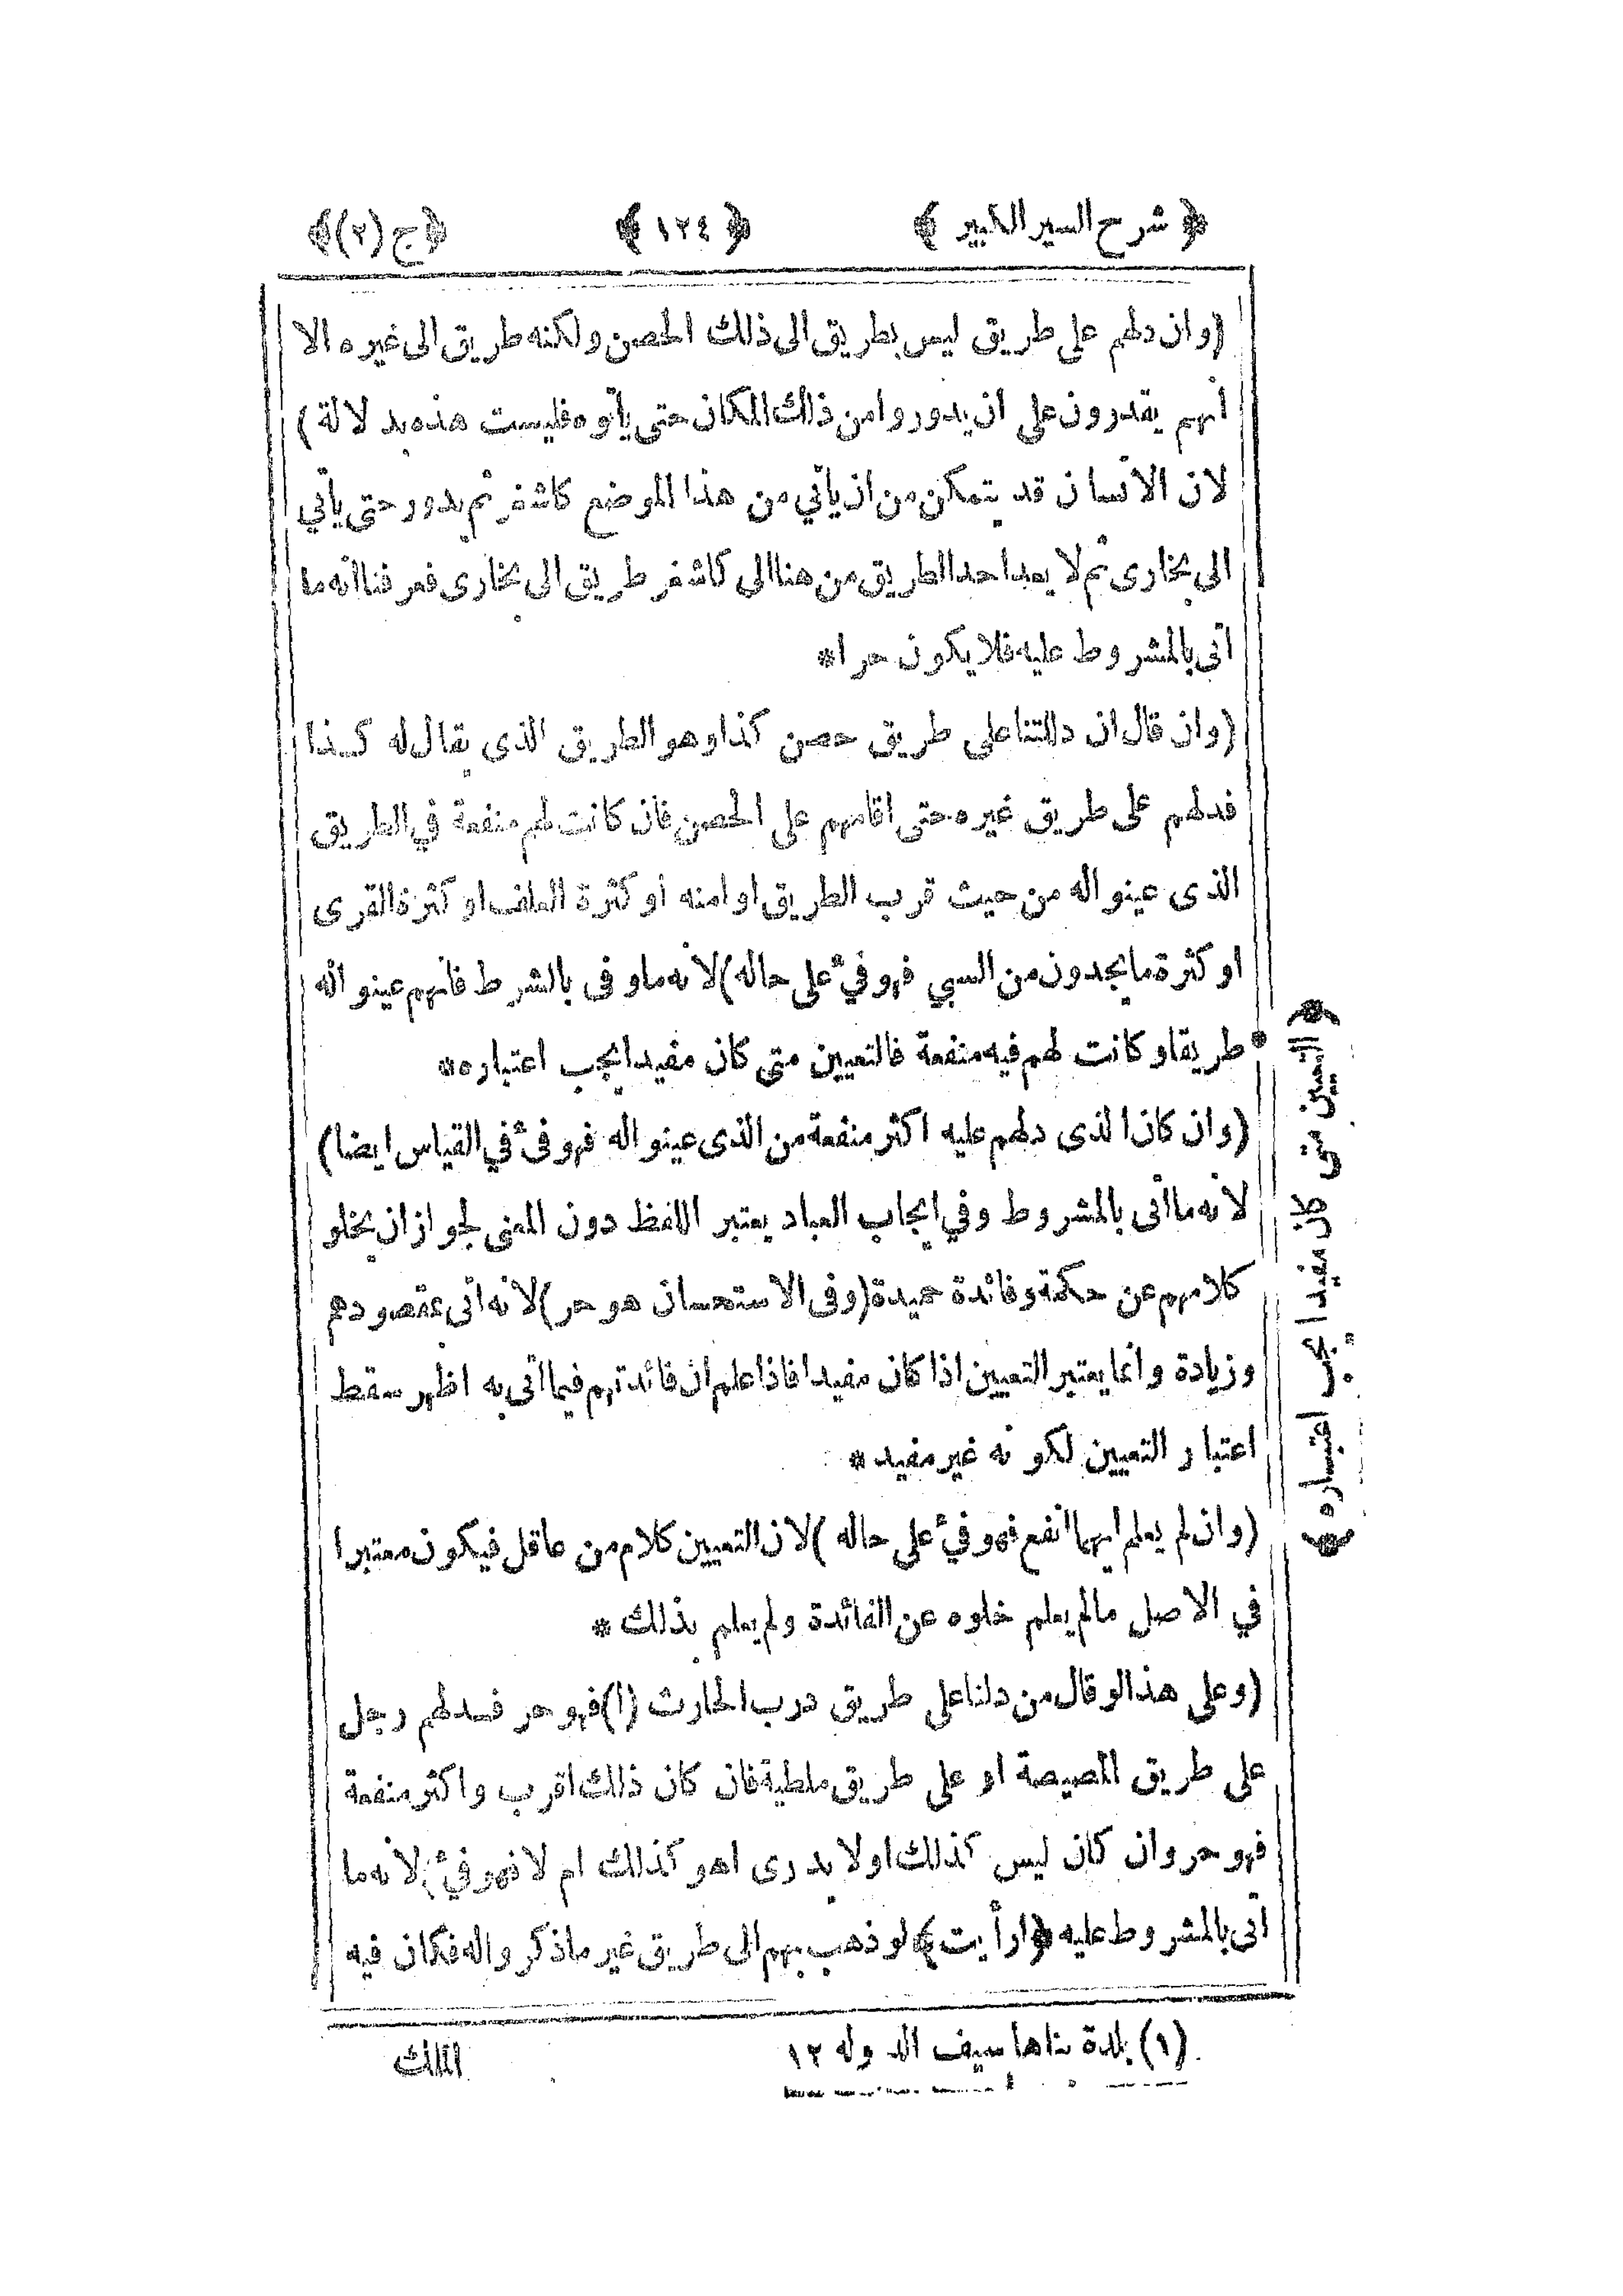 ﴿ شرح السير الكبير ﴾ ﴿ ١٢٤ ﴾ ﴿ ج (٢) ﴾
(وان دلهم على طريق ليس بطريق الى ذلك الحصن ولكنه طريق الى غيره الا
انهم يقدرون على ان يدوروا من ذلك المكان حتى يأتوه فليست هذه بدلالة)
لان الانسان قد يتمكن من ان يأتي من هذا الموضع كاشغر ثم يدور حتى يأتي
الى بخارى ثم لا يعد احد الطريق من هنا الى كاشغر طريق الى بخارى فعرفنا انه ما
اتى بالمشروط عليه فلا يكون حرا*
(وان قال ان دللتنا على طريق حصن كذا وهو الطريق الذى يقال له كذا
فدلهم على طريق غيره حتى اقامهم على الحصن فان كانت لهم منفعة في الطريق
الذى عينوا له من حيث قرب الطريق او امنه او كثرة العلف او كثرة القرى
او كثرة ما يجدون من السبي فهو فئ على حاله) لانه ما وفى بالشرط فانهم عينوا له
طريقا وكانت لهم فيه منفعة فالتعيين متى كان مفيدا يجب اعتباره*
(وان كان الذى دلهم عليه اكثر منفعة من الذى عينوا له فهو فىٔ في القياس ايضا)
لانه ما اتى بالمشروط وفي ايجاب العباد يعتبر اللفظ دون المعنى لجواز ان يخلو
كلامهم عن حكمة وفائدة حميدة (وفى الاستحسان هو حر) لانه اتى بمقصودهم
وزيادة وانما يعتبر التعيين اذا كان مفيدا فاذا علم ان فائدتهم فيما اتى به اظهر سقط
اعتبار التعيين لكونه غير مفيد*
(وان لم يعلم ايهما انفع فهو فئ على حاله) لان التعيين كلام من عاقل فيكون معتبرا
في الاصل مالم يعلم خلوه عن الفائدة ولم يعلم بذلك*
(وعلى هذا لو قال من دلنا على طريق درب الحارث (١) فهو حر فدلهم رجل
على طريق المصيصة او على طريق ملطية فان كان ذلك اقرب واكثر منفعة
فهو حر وان كان ليس كذلك او لا يدرى اهو كذلك ام لا فهو فئ) لانه ما
اتى بالمشروط عليه ﴿ارأيت﴾ لو ذهب بهم الى طريق غير ما ذكروا له فكان فيه
﴿ التعيين متى كان مفيدا يجب اعتباره ﴾
(١) بلدة بناها سيف الدوله ١٢
الملك